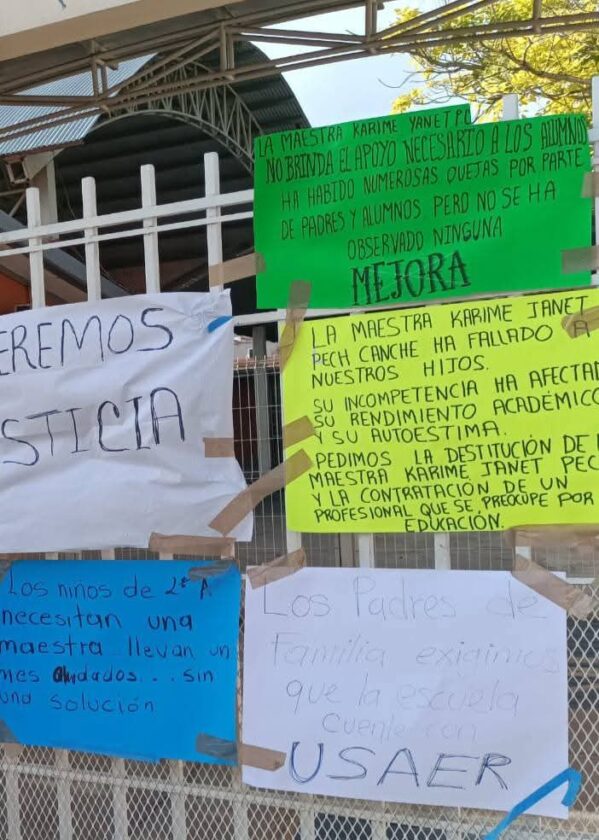 LA MAESTRA KARIME YANET PC
NO BRINDA EL APOYO NECESARIO A LOS ALUMNOS
HA HABIDO NUMEROSAS QUEJAS POR PARTE
DE PADRES Y ALUMNOS PERO NO SE HA
OBSERVADO NINGUNA
MEJORA
EREMOS
STICIA
LA MAESTRA KARIME JANET
PECH CANCHE HA FALLADO A
NUESTROS HIJOS.
SU INCOMPETENCIA HA AFECTAD
SU RENDIMIENTO ACADÉMICO
Y SU AUTOESTIMA.
PEDIMOS LA DESTITUCIÓN DE L
MAESTRA KARIME JANET PEC
Y LA CONTRATACIÓN DE UN
PROFESIONAL QUE SE PREOCUPE POR
EDUCACIÓN.
Los niños de 2° A
necesitan una
maestra llevan un
mes dados... sin
una solución
Los Padres de
Familia exigimos
que la escuela
cuente con
USAER